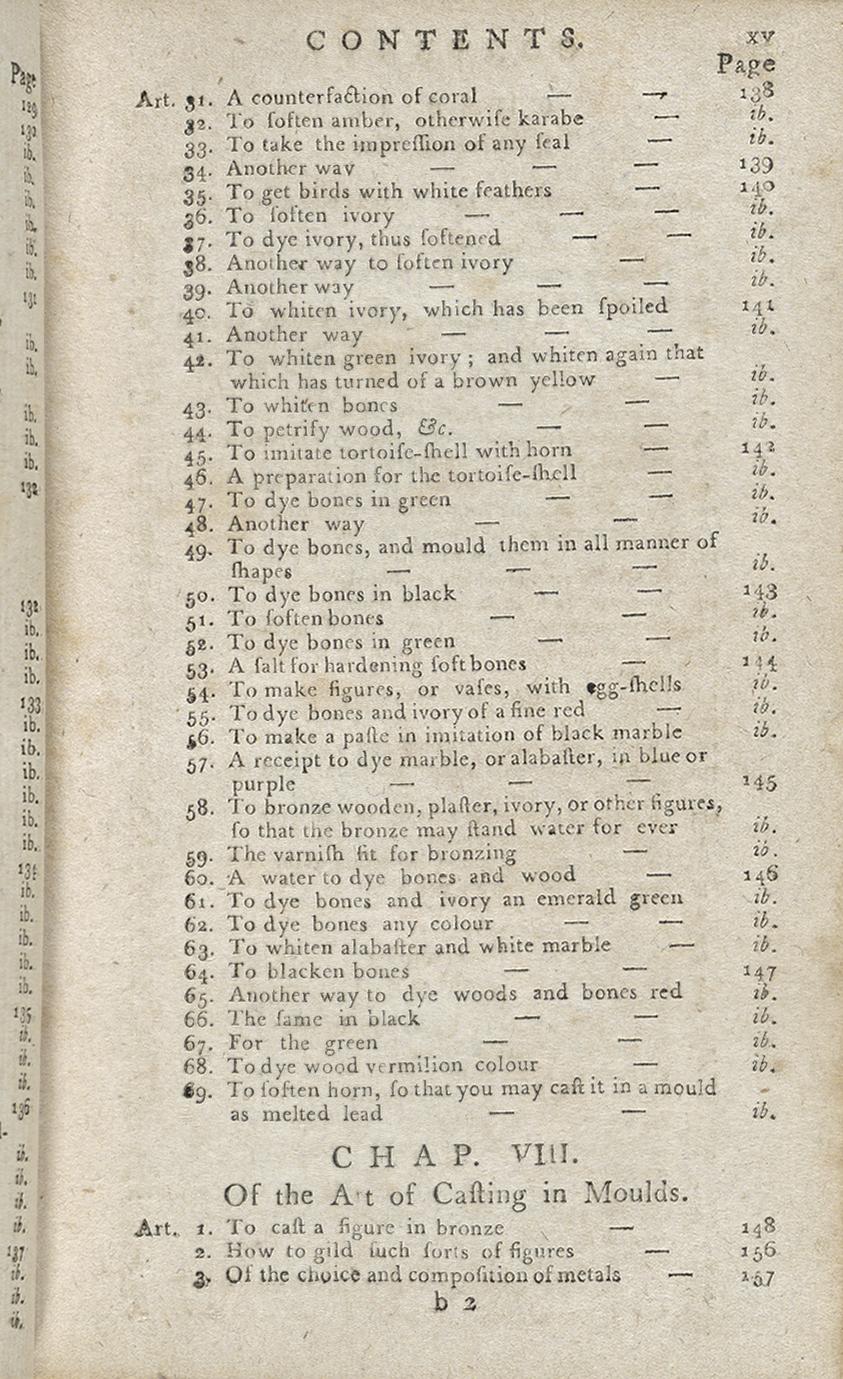 CONTENTS. xv
Page
Art. 31. A counterfaction of coral — — 138
32. To ſoften amber, otherwiſe karabe — ib.
33. To take the impreſſion of any ſeal — ib.
34. Another way — — — 139
35. To get birds with white feathers — 140
36. To ſoften ivory — — — ib.
37. To dye ivory, thus ſoftened — — ib.
38. Another way to ſoften ivory — ib.
39. Another way — — — ib.
40. To whiten ivory, which has been ſpoiled 141
41. Another way — — — ib.
42. To whiten green ivory ; and whiten again that
which has turned of a brown yellow — ib.
43. To whiten bones — — ib.
44. To petrify wood, &c. — — ib.
45. To imitate tortoiſe-ſhell with horn — 142
46. A preparation for the tortoiſe-ſhell — ib.
47. To dye bones in green — — ib.
48. Another way — — ib.
49. To dye bones, and mould them in all manner of
ſhapes — — — ib.
50. To dye bones in black — — 143
51. To ſoften bones — — ib.
52. To dye bones in green — — ib.
53. A ſalt for hardening ſoft bones — 144
54. To make figures, or vaſes, with egg-ſhells ib.
55. To dye bones and ivory of a fine red — ib.
56. To make a paſte in imitation of black marble ib.
57. A receipt to dye marble, or alabaſter, in blue or
purple — — — 145
58. To bronze wooden, plaſter, ivory, or other figures,
ſo that the bronze may ſtand water for ever ib.
59. The varniſh fit for bronzing — ib.
60. A water to dye bones and wood — 146
61. To dye bones and ivory an emerald green ib.
62. To dye bones any colour — — ib.
63. To whiten alabaſter and white marble — ib.
64. To blacken bones — — 147
65. Another way to dye woods and bones red ib.
66. The ſame in black — — ib.
67. For the green — — ib.
68. To dye wood vermilion colour — ib.
69. To ſoften horn, ſo that you may caſt it in a mould
as melted lead — — ib.
CHAP. VIII.
Of the Art of Caſting in Moulds.
Art. 1. To caſt a figure in bronze — 148
2. How to gild ſuch ſorts of figures — 156
3. Of the choice and compoſition of metals — 157
b 2